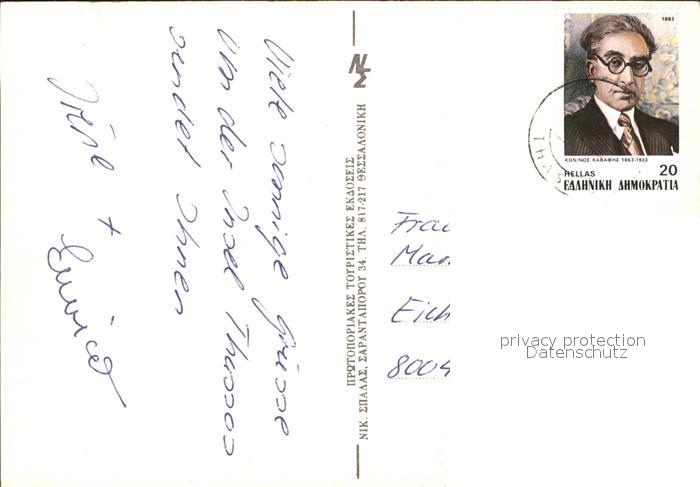 Viele sonnige Grüsse
von der Insel Thassos
sendet Ihnen
+
ΝΣ
ΠΡΩΤΟΠΟΡΙΑΚΕΣ ΤΟΥΡΙΣΤΙΚΕΣ ΕΚΔΟΣΕΙΣ
ΝΙΚ. ΣΠΑΛΑΣ, ΣΑΡΑΝΤΑΠΟΡΟΥ 34, ΤΗΛ. 817-217 ΘΕΣΣΑΛΟΝΙΚΗ
1983
ΚΩΝ/ΝΟΣ ΚΑΒΑΦΗΣ 1863-1933
HELLAS 20
ΕΛΛΗΝΙΚΗ ΔΗΜΟΚΡΑΤΙΑ
Frau
Mar
Eich
8004
privacy protection
Datenschutz